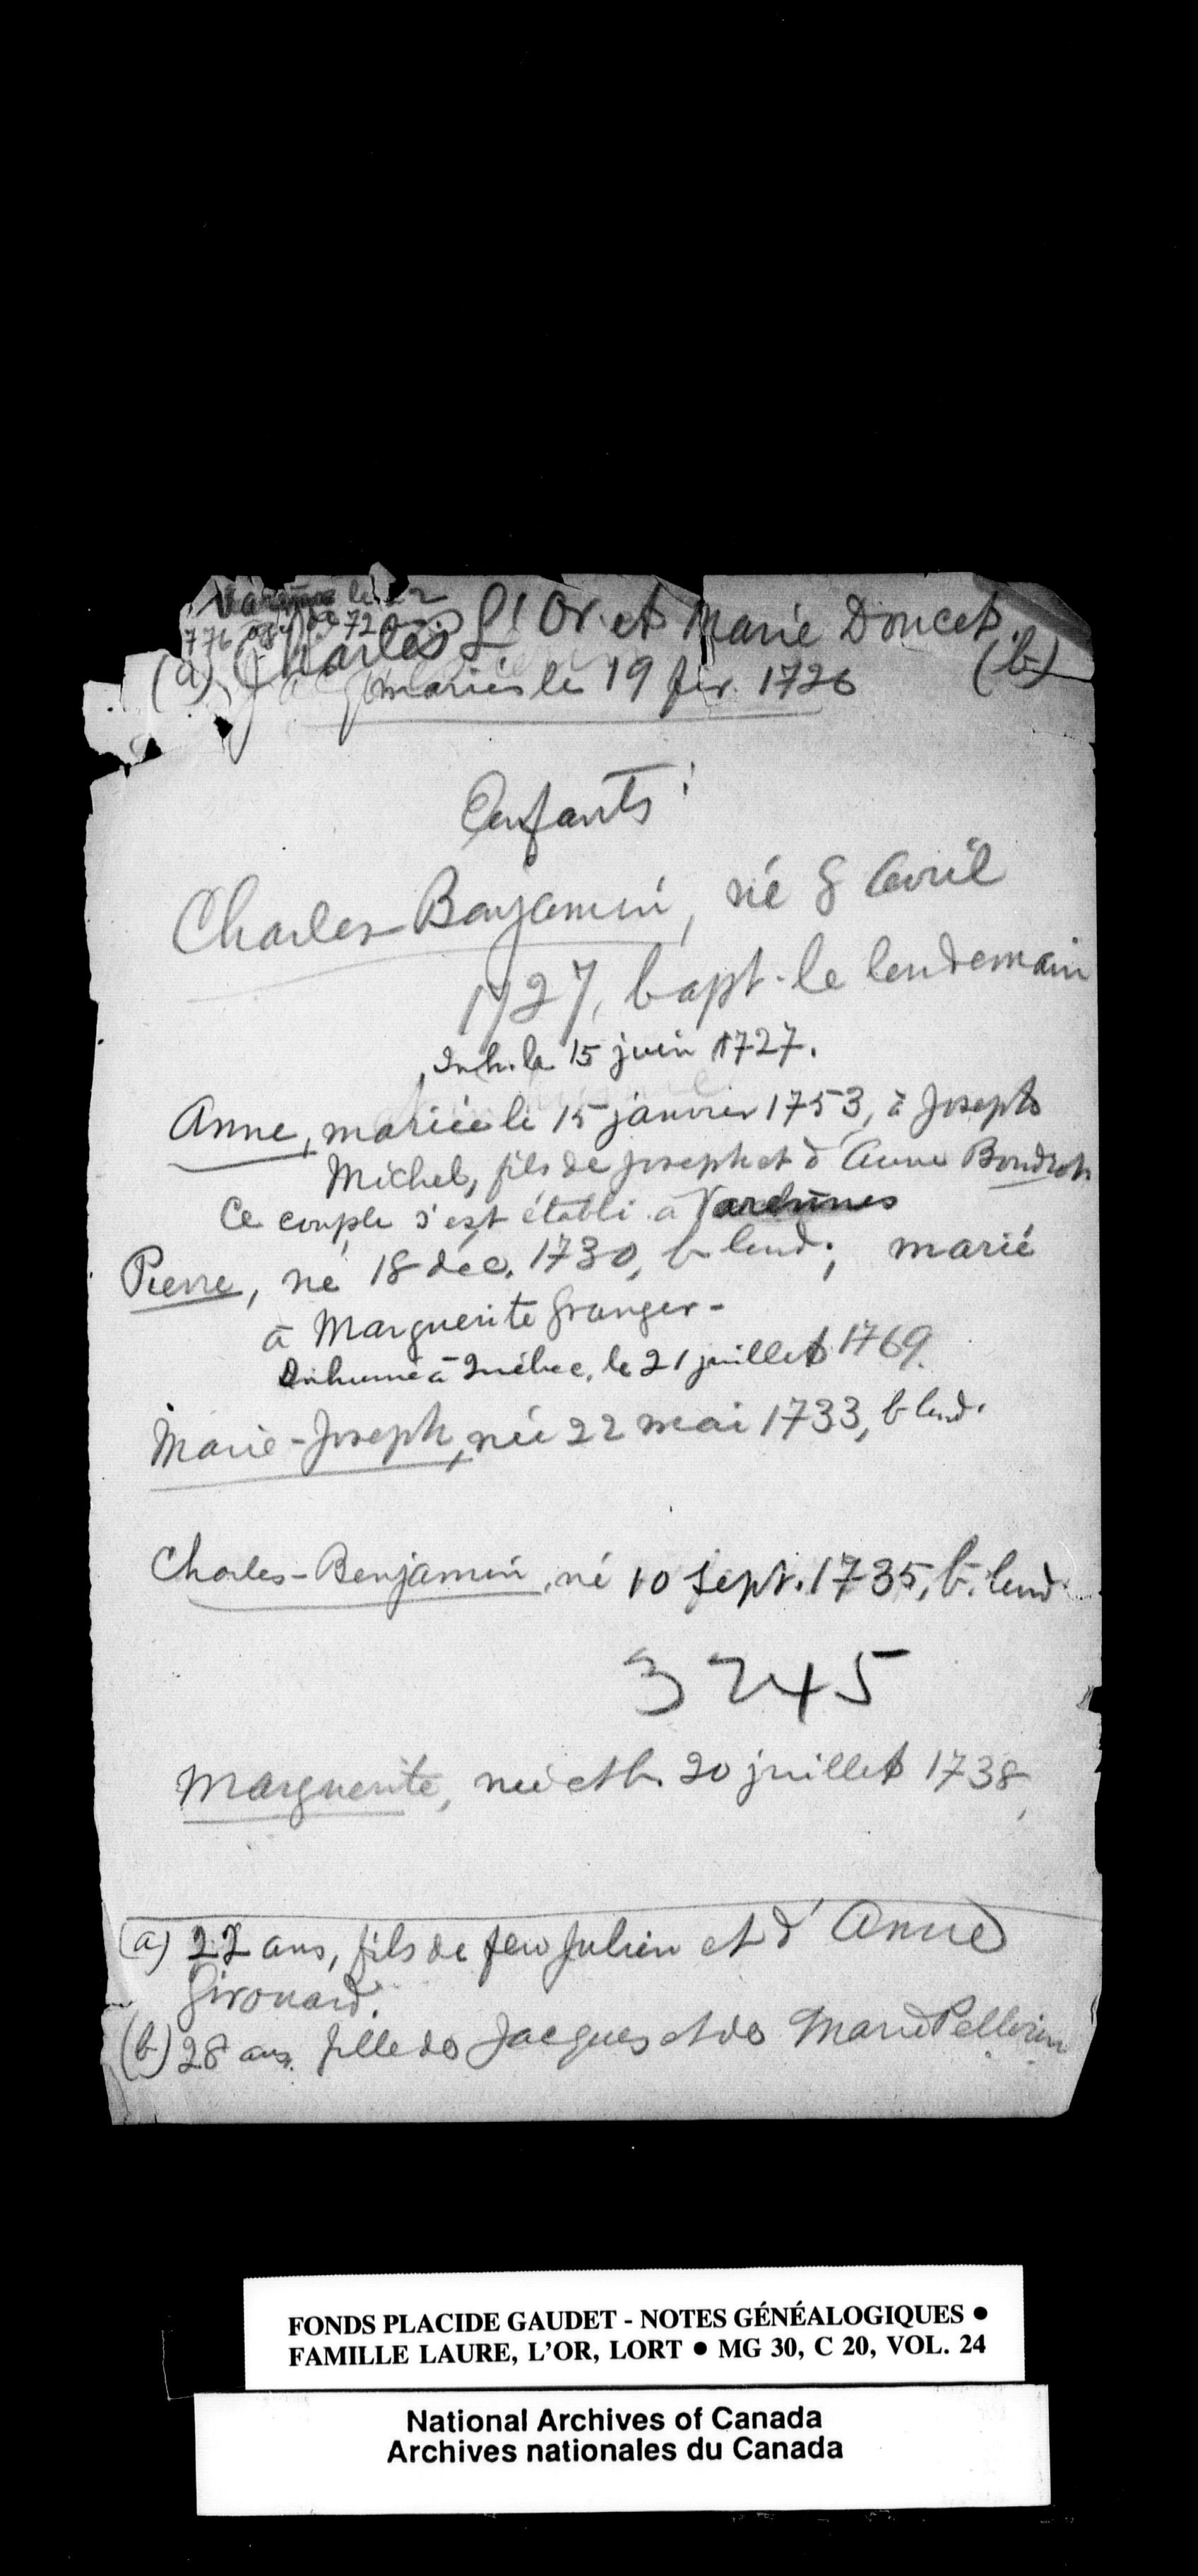 le 22
776 72 ans
(a) Charles L'Or et Marie Doucet (b)
mariés le 19 fév. 1726
Enfants:
Charles-Benjamin, né 8 avril
1727, bapt. le lendemain
Inh. le 15 juin 1727.
Anne, mariée le 15 janvier 1753, à Joseph
Michel, fils de Joseph et d'Anne Boudrot.
Ce couple s'est établi à
Pierre, né 18 déc. 1730, b. lend.; marié
à Marguerite Granger -
Inhumé à Québec, le 21 juillet 1769.
Marie-Joseph, née 22 mai 1733, b lend.
Charles-Benjamin, né 10 sept. 1735, b. lend.
3245
Marguerite, née et b. 20 juillet 1738,
(a) 27 ans, fils de feu Julien et d'Anne
Girouard.
(b) 28 ans. fille de Jacques et de Marie Pellerin
FONDS PLACIDE GAUDET - NOTES GÉNÉALOGIQUES ●
FAMILLE LAURE, L'OR, LORT ● MG 30, C 20, VOL. 24
National Archives of Canada
Archives nationales du Canada